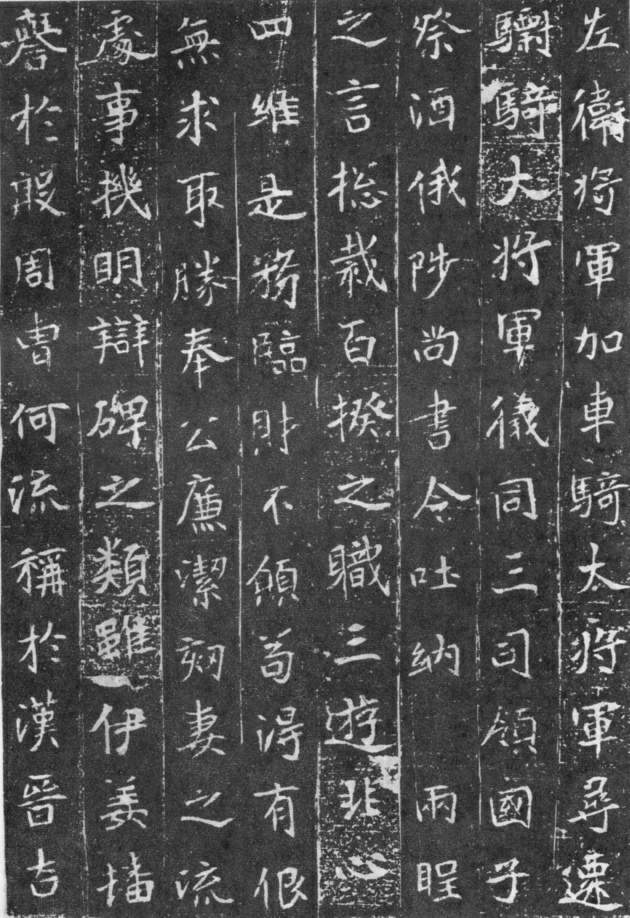 左衛将軍加車騎大将軍尋遷
驃騎大将軍儀同三司領國子
祭酒俄陟尚書令吐納　兩眰
之言揔裁百揆之職三遊非心
四維是務臨財不傾苟淂有佷
無求取勝奉公廉潔剏妻之流
處事機明辯碑之類雖伊姜播
譽於殷周曺何流稱於漢晉吉